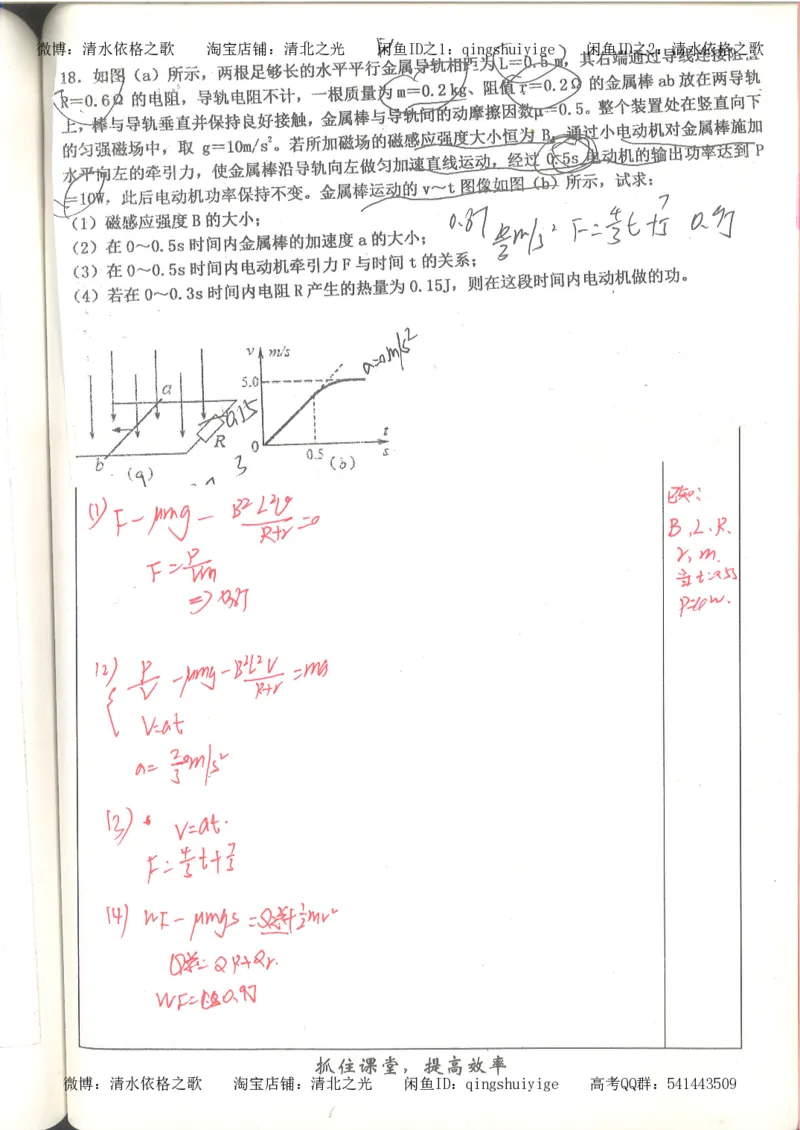 微博：清水依格之歌 淘宝店铺：清北之光 闲鱼ID之1：qingshuiyige 闲鱼ID之2：清水依格之歌
18. 如图（a）所示，两根足够长的水平平行金属导轨相距为L＝0.5m，其右端通过导线连接阻
R＝0.6Ω 的电阻，导轨电阻不计，一根质量为 m＝0.2kg、阻值 r＝0.2Ω 的金属棒 ab 放在两导轨
上，棒与导轨垂直并保持良好接触，金属棒与导轨间的动摩擦因数μ＝0.5。整个装置处在竖直向下
的匀强磁场中，取 g＝10m/s²。若所加磁场的磁感应强度大小恒为 B，通过小电动机对金属棒施加
水平向左的牵引力，使金属棒沿导轨向左做匀加速直线运动，经过 0.5s 电动机的输出功率达到 P
＝10W，此后电动机功率保持不变。金属棒运动的 v～t 图像如图（b）所示，试求：
（1）磁感应强度 B 的大小；
（2）在 0～0.5s 时间内金属棒的加速度 a 的大小；
（3）在 0～0.5s 时间内电动机牵引力 F 与时间 t 的关系；
（4）若在 0～0.3s 时间内电阻 R 产生的热量为 0.15J，则在这段时间内电动机做的功。
v m/s
a=0m/s²
5.0
a
0.15
R
0
0.5
t
s
b
(a)
(b)
3
(1) F-μmg-B²L²v/(R+r)=0
F=P/vm
已知：
B,L.R.
r,m.
P=10w.
(2) P/v-μmg-B²L²v/(R+r)=ma
v=at
a=20/3m/s²
(3) v=at.
F=4/3t+7/3
(4) WF-μmgs=Q总+½mv²
Q总=QR+Qr.
抓住课堂，提高效率
微博：清水依格之歌 淘宝店铺：清北之光 闲鱼ID：qingshuiyige 高考QQ群：541443509